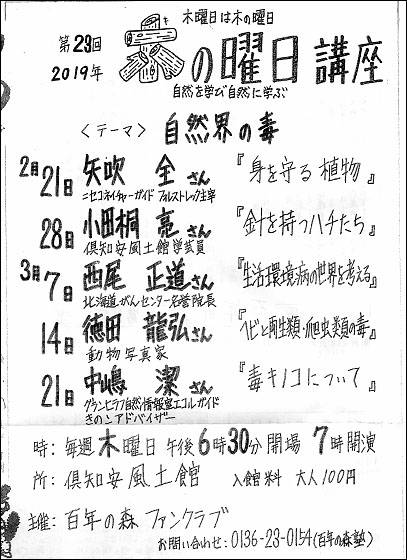 木曜日は木の曜日
第29回
2019年
木の曜日講座
自然を学び自然に学ぶ
〈テーマ〉 自然界の毒
2月21日 矢吹 全さん 『身を守る植物』
ニセコネイチャーガイド フォレストレック主宰
28日 小田桐 亮さん 『針を持つハチたち』
倶知安風土館学芸員
3月7日 西尾 正道さん 『生活環境病の世界を考える』
北海道がんセンター名誉院長
14日 徳田 龍弘さん 『ヘビと両生類・爬虫類の毒』
動物写真家
21日 中嶋 潔さん 『毒キノコについて』
グランヒラフ自然情報室エコルガイド
きのこアドバイザー
時：毎週木曜日 午後6時30分開場 7時開演
所：倶知安風土館 入館料 大人100円
主催：百年の森ファンクラブ
お問い合わせ：0136-23-0154(百年の森塾)